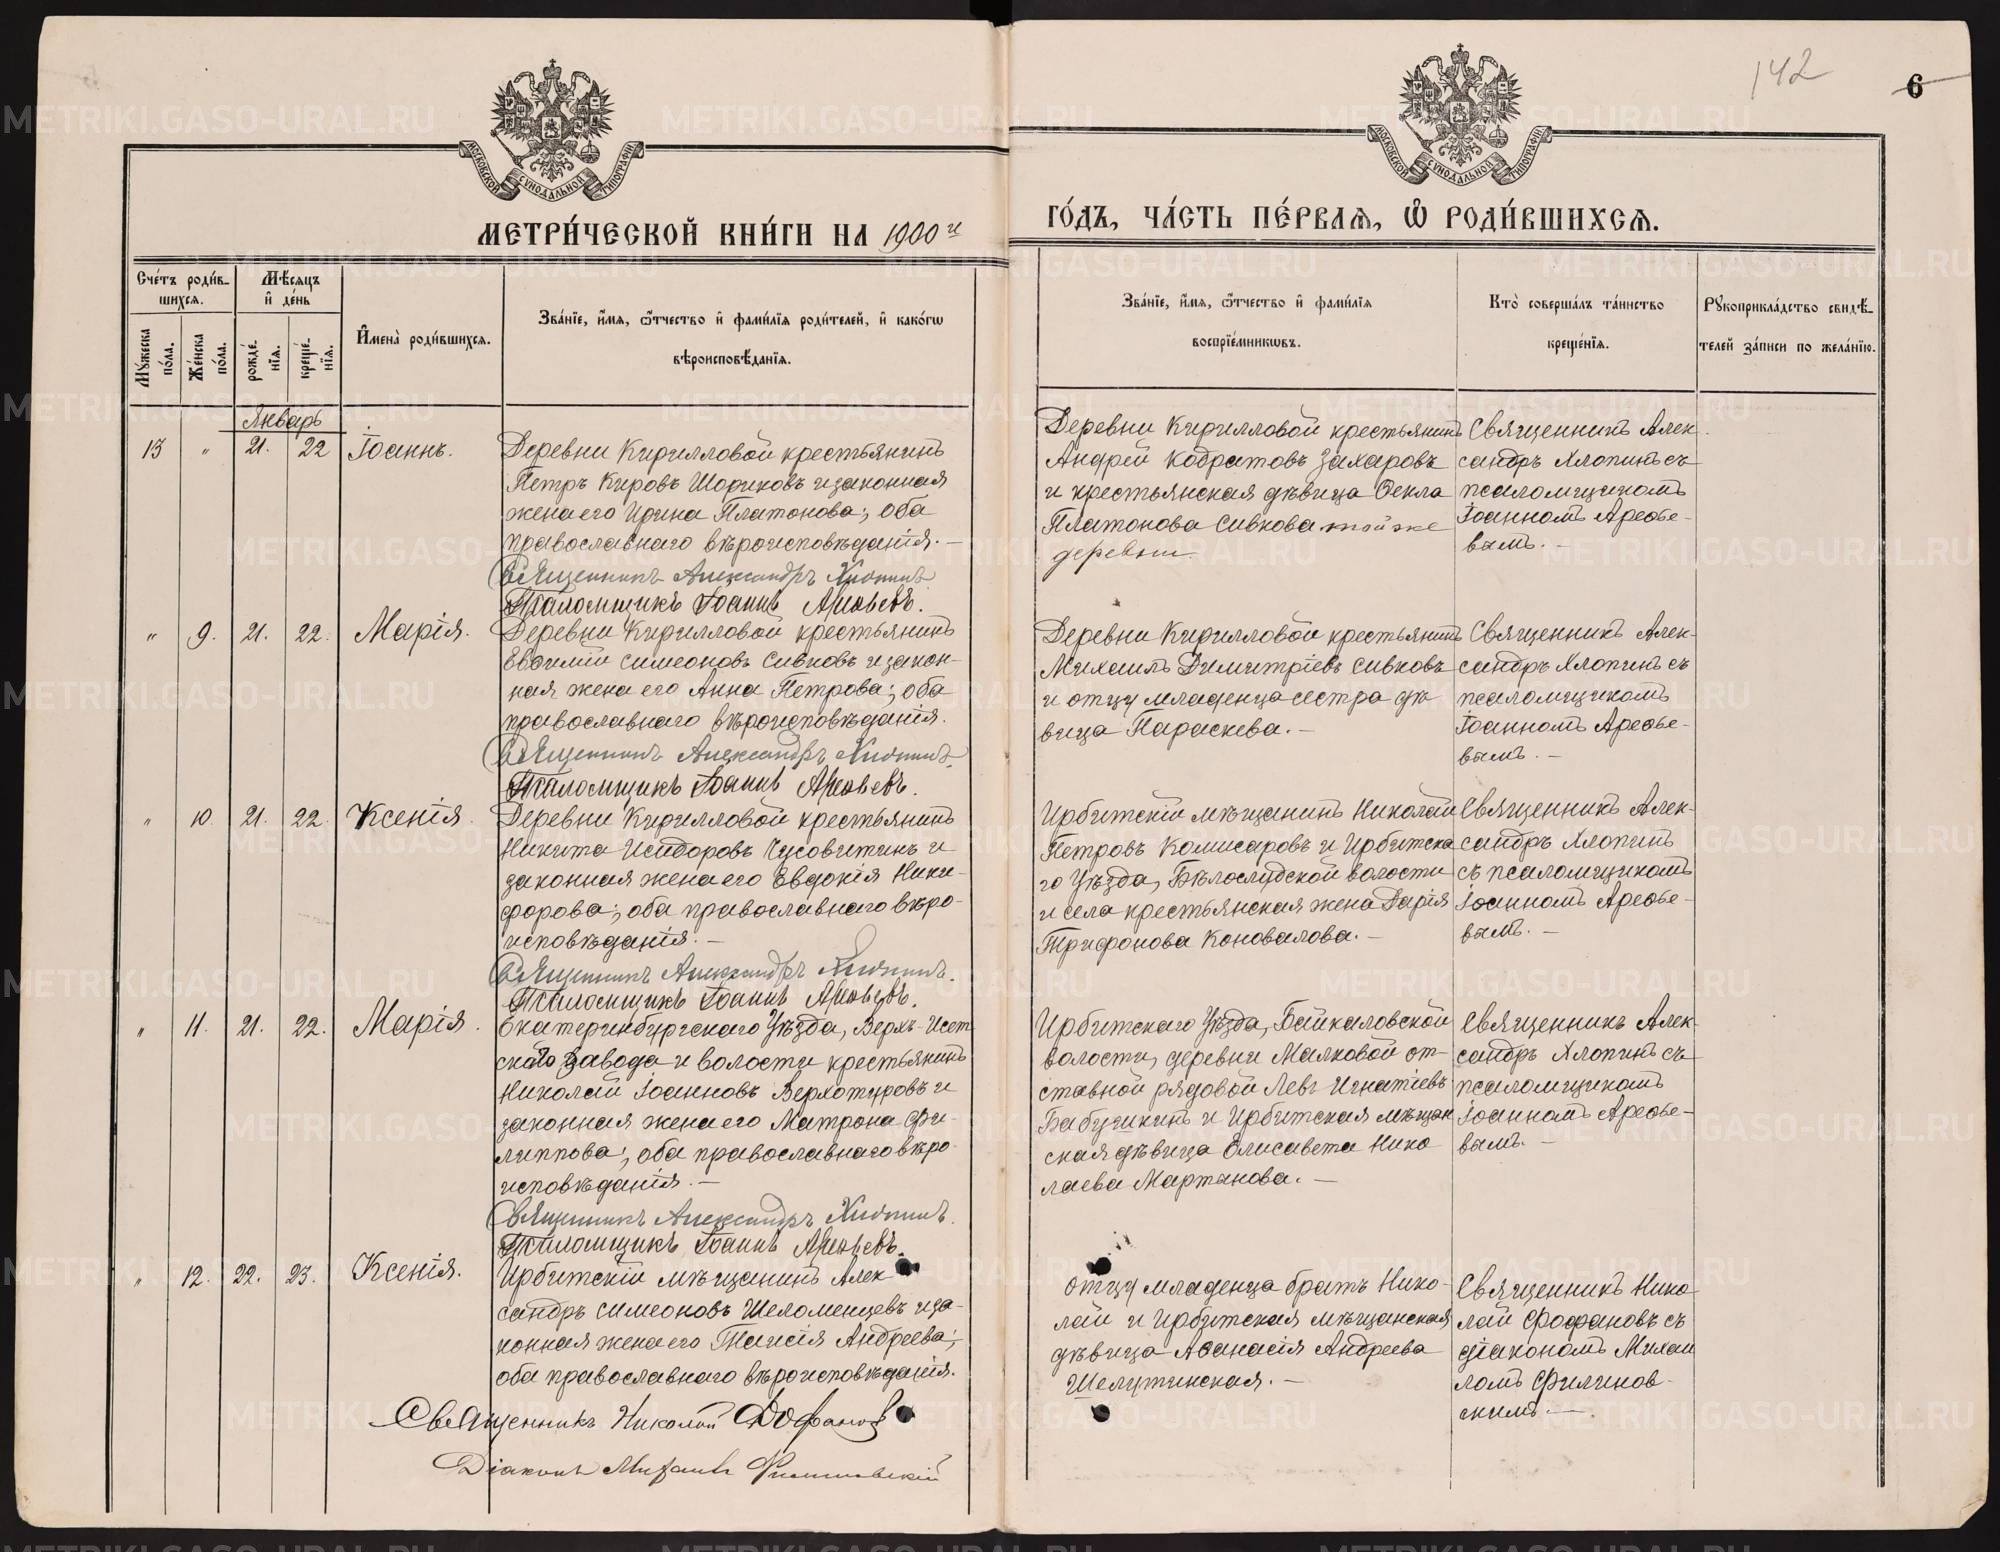 142
6
МОСКОВСКОЙ СУНОДАЛЬНОЙ ТИПОГРАФІИ
МОСКОВСКОЙ СУНОДАЛЬНОЙ ТИПОГРАФІИ
МЕТРИ́ЧЕСКОЙ КНИ́ГИ НА 1900й
ГО́ДЪ, ЧА́СТЬ ПЕ́РВАѦ, Ѿ РОДИ́ВШИХСѦ.
Сче́тъ роди́в-
шихсѧ.
Мѣ́сѧцъ
и҆ де́нь
Мꙋ́жеска по́ла.
Же́нска по́ла.
рожде́нїѧ.
креще́нїѧ.
И҆мена̀ роди́вшихсѧ.
Зва́нїе, и҆́мѧ, ѻ҆́тчество и҆ фами́лїѧ роди́телей, и҆ како́гѡ
вѣроисповѣ́данїѧ.
Зва́нїе, и҆́мѧ, ѻ҆́тчество и҆ фами́лїѧ
воспрїе́мникѡвъ.
Кто̀ соверша́лъ та́инство
креще́нїѧ.
Рꙋкоприкла́дство свидѣ́-
телей за́писи по жела́нїю.
Январь
13 " 21. 22 Іоаннъ.
Деревни Кирилловой крестьянинъ
Петръ Кировъ Шориковъ и законная
жена его Ирина Платонова; оба
православнаго вѣроисповѣданія. —
Священникъ Александръ Хлопинъ
Псаломщикъ Іоаннъ Арефьевъ.
Деревни Кирилловой крестьянинъ
Андрей Кодратовъ Захаровъ
и крестьянская дѣвица Ѳекла
Платонова Сивкова той же
деревни
Священникъ Алек-
сандръ Хлопинъ съ
псаломщикомъ
Іоанномъ Арефье-
вымъ. —
" 9. 21. 22. Марія.
Деревни Кирилловой крестьянинъ
Евѳимій Симеоновъ Сивковъ и закон-
ная жена его Анна Петрова; оба
православнаго вѣроисповѣданія.
Священникъ Александръ Хлопинъ.
Псаломщикъ Іоаннъ Арефьевъ.
Деревни Кирилловой крестьянинъ
Михаилъ Димитріевъ Сивковъ
и отцу младенца сестра дѣ-
вица Параскева. —
Священникъ Алек-
сандръ Хлопинъ съ
псаломщикомъ
Іоанномъ Арефье-
вымъ. —
" 10. 21. 22. Ксенія.
Деревни Кирилловой крестьянинъ
Никита Исидоровъ Чусовитинъ и
законная жена его Евдокія Ники-
форова; оба православнаго вѣро-
исповѣданія. —
Священникъ Александръ Хлопинъ.
Псаломщикъ Іоаннъ Арефьевъ.
Ирбитскій мѣщанинъ Николай
Петровъ Комисаровъ и Ирбитска
го Уѣзда, Бѣлослудской волости
и села крестьянская жена Дарія
Трифонова Коновалова. —
Священникъ Алек-
сандръ Хлопинъ
съ псаломщикомъ
Іоанномъ Арефье-
вымъ. —
" 11. 21. 22. Марія.
Екатеринбургскаго Уѣзда, Верхъ-Исет
скаго Завода и волости крестьянинъ
Николай Іоанновъ Верхотуровъ и
законная жена его Матрона Фи-
липпова; оба православнаго вѣро-
исповѣданія. —
Священникъ Александръ Хлопинъ.
Псаломщикъ Іоаннъ Арефьевъ.
Ирбитскаго Уѣзда, Байкаловской
волости, деревни Малковой от-
ставной рядовой Левъ Игнатіевъ
Бабушкинъ и Ирбитская мѣщан
ская дѣвица Елисавета Нико
лаева Мартынова. —
Священникъ Алек-
сандръ Хлопинъ съ
псаломщикомъ
Іоанномъ Арефье-
вымъ. —
" 12. 22. 23. Ксенія.
Ирбитскій мѣщанинъ Алек
сандръ Симеоновъ Шеломенцевъ и за-
конная жена его Таисія Андреева;
оба православнаго вѣроисповѣданія.
Священникъ Николай Фофановъ
Діаконъ Михаилъ Филиновскій
Отцу младенца братъ Нико-
лай и Ирбитская мѣщанская
дѣвица Аѳанасія Андреева
Шелутинская. —
Священникъ Нико
лай Фофановъ съ
діакономъ Михаи
ломъ Филинов-
скимъ. —